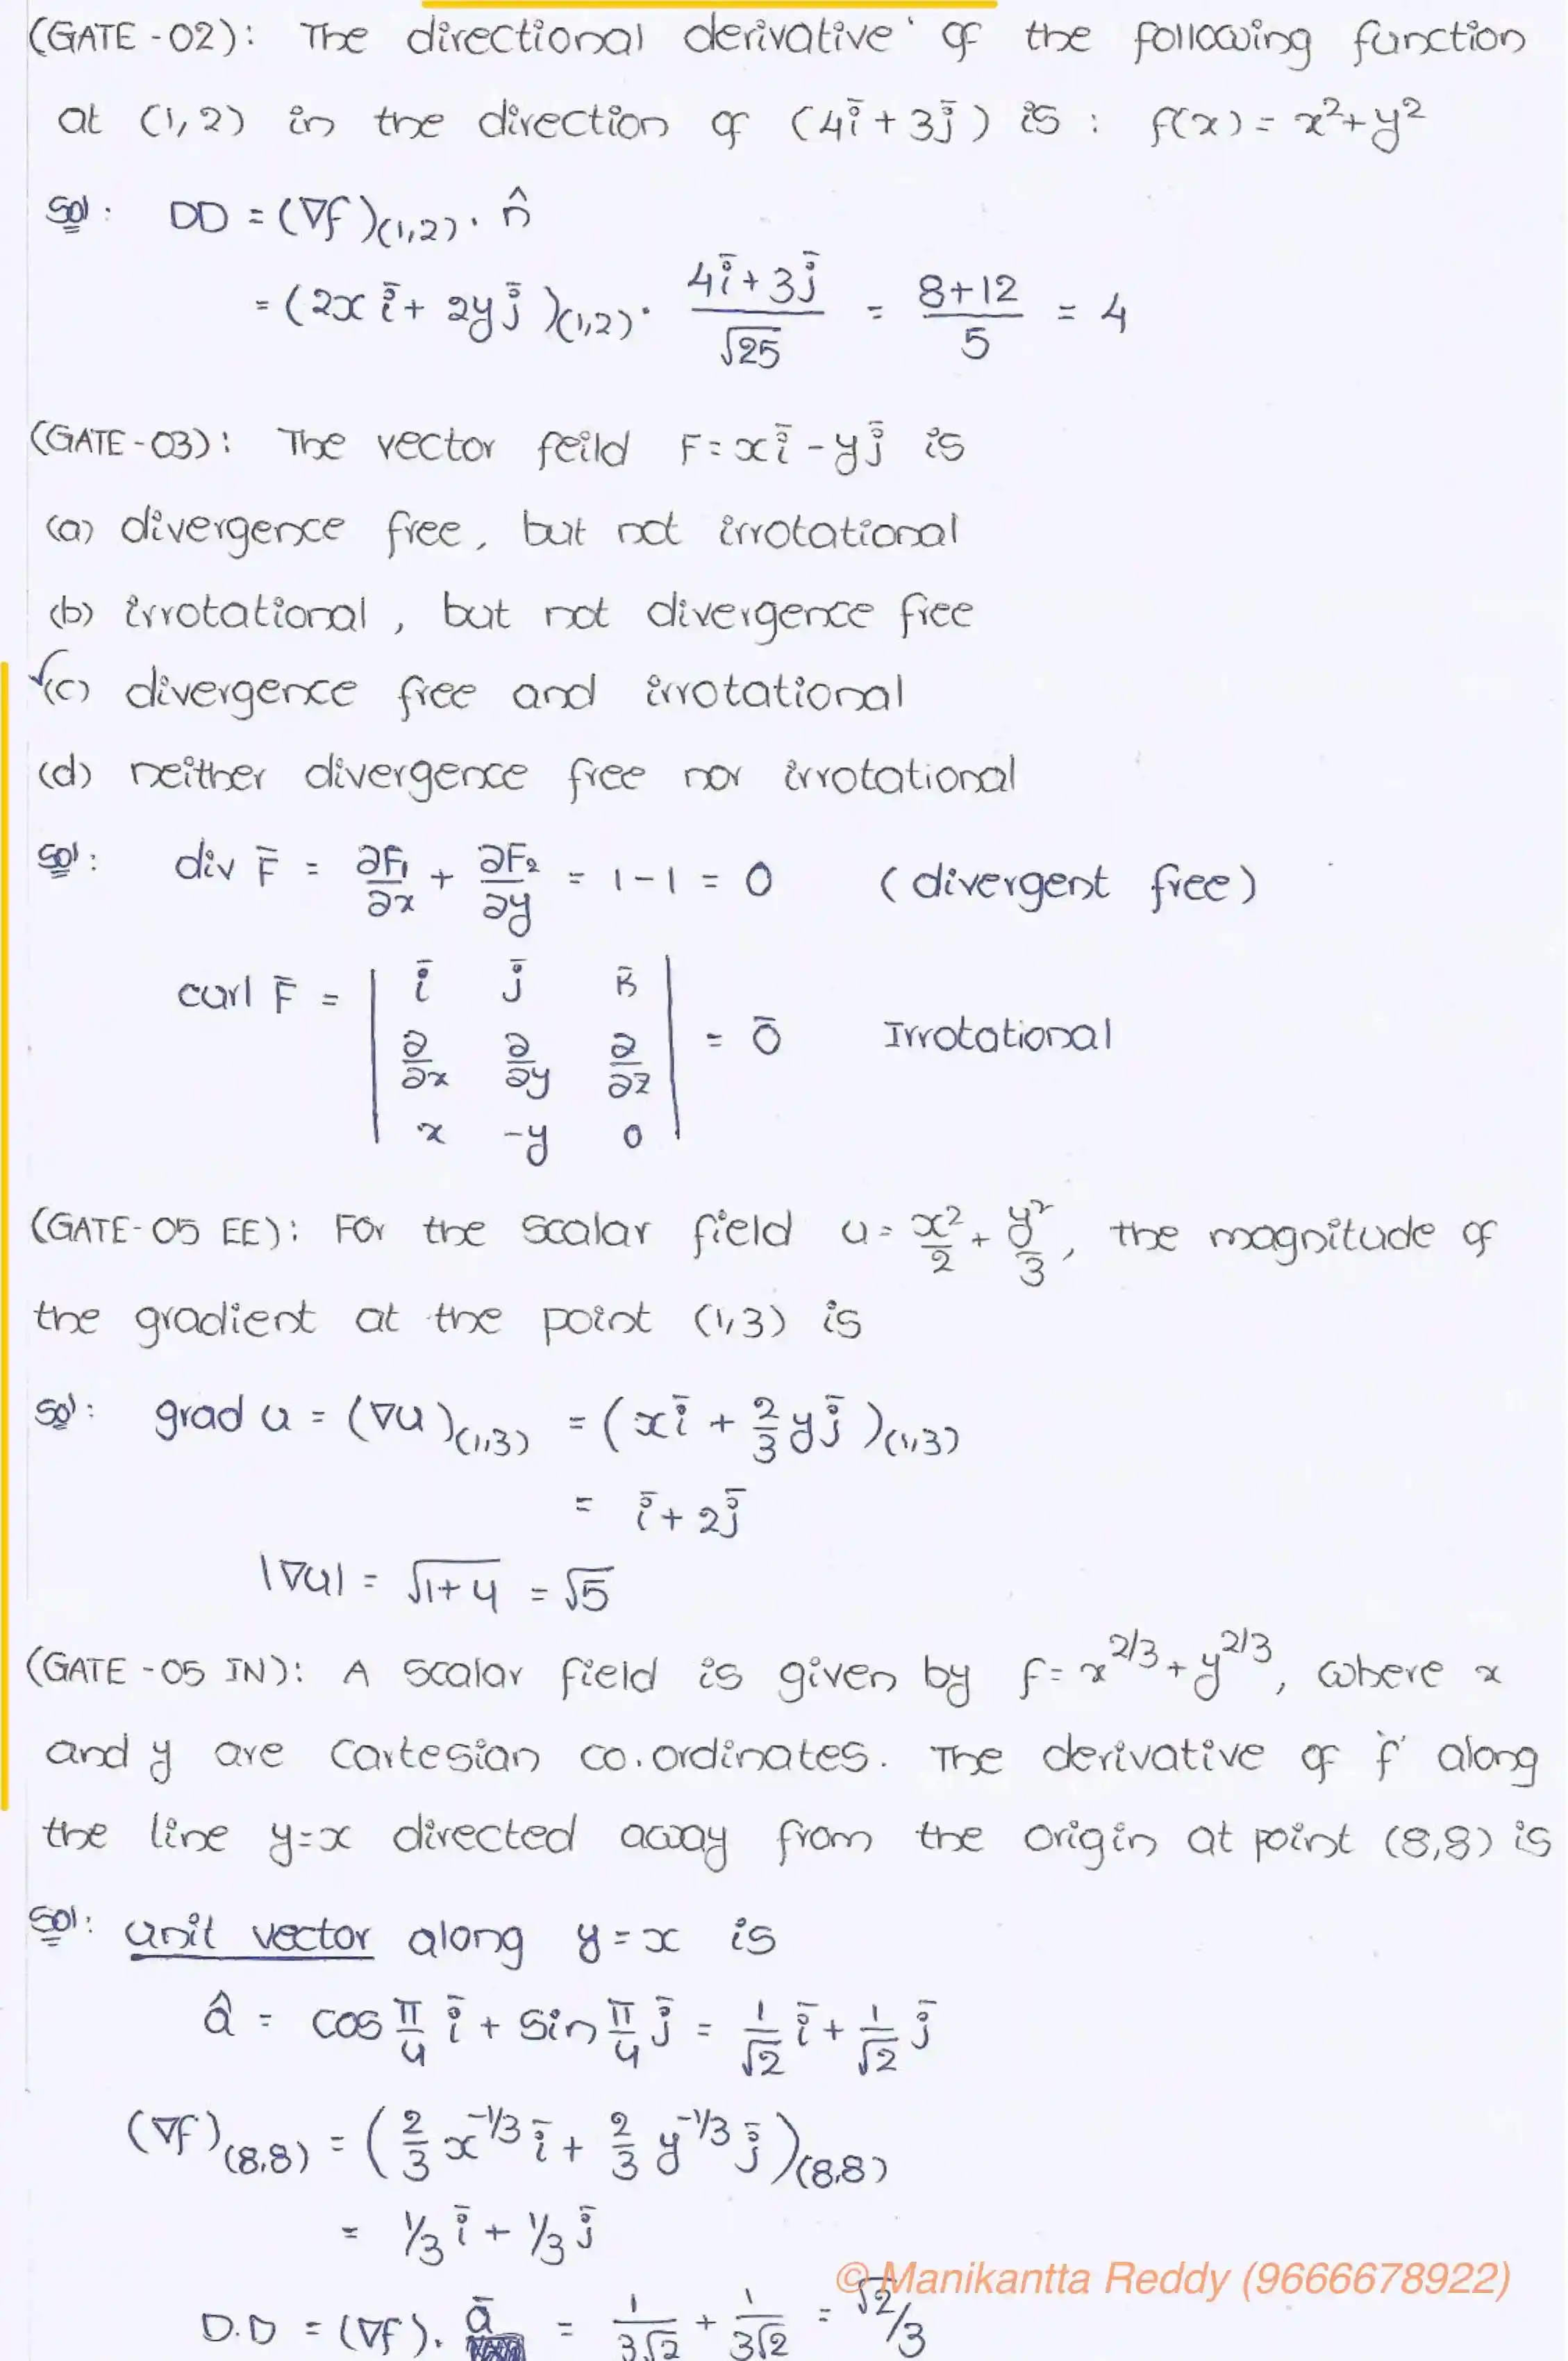 (GATE-02): The directional derivative of the following function
at (1,2) in the direction of (4i̅ + 3j̅) is : f(x) = x²+y²
Sol: DD = (∇f)(1,2) · n̂
= (2x i̅ + 2y j̅)(1,2) · (4i̅ + 3j̅)/√25 = (8+12)/5 = 4
(GATE-03): The vector feild F = xi̅ - yj̅ is
(a) divergence free, but not irrotational
(b) irrotational, but not divergence free
✓(c) divergence free and irrotational
(d) neither divergence free nor irrotational
Sol: div F̅ = ∂F₁/∂x + ∂F₂/∂y = 1-1 = 0 (divergent free)
curl F̅ = | i̅ j̅ k̅ |
| ∂/∂x ∂/∂y ∂/∂z | = 0̅ Irrotational
| x -y 0 |
(GATE-05 EE): For the scalar field u = x²/2 + y²/3, the magnitude of
the gradient at the point (1,3) is
Sol: grad u = (∇u)(1,3) = (xi̅ + 2/3 yj̅)(1,3)
= i̅ + 2j̅
|∇u| = √1+4 = √5
(GATE-05 IN): A scalar field is given by f = x^2/3 + y^2/3, where x
and y are Cartesian co.ordinates. The derivative of 'f' along
the line y=x directed away from the origin at point (8,8) is
Sol: unit vector along y=x is
â = cos π/4 i̅ + sin π/4 j̅ = 1/√2 i̅ + 1/√2 j̅
(∇f)(8,8) = (2/3 x^-1/3 i̅ + 2/3 y^-1/3 j̅)(8,8)
= 1/3 i̅ + 1/3 j̅
© Manikantta Reddy (9666678922)
D.D = (∇f). a̅ = 1/3√2 + 1/3√2 = √2/3